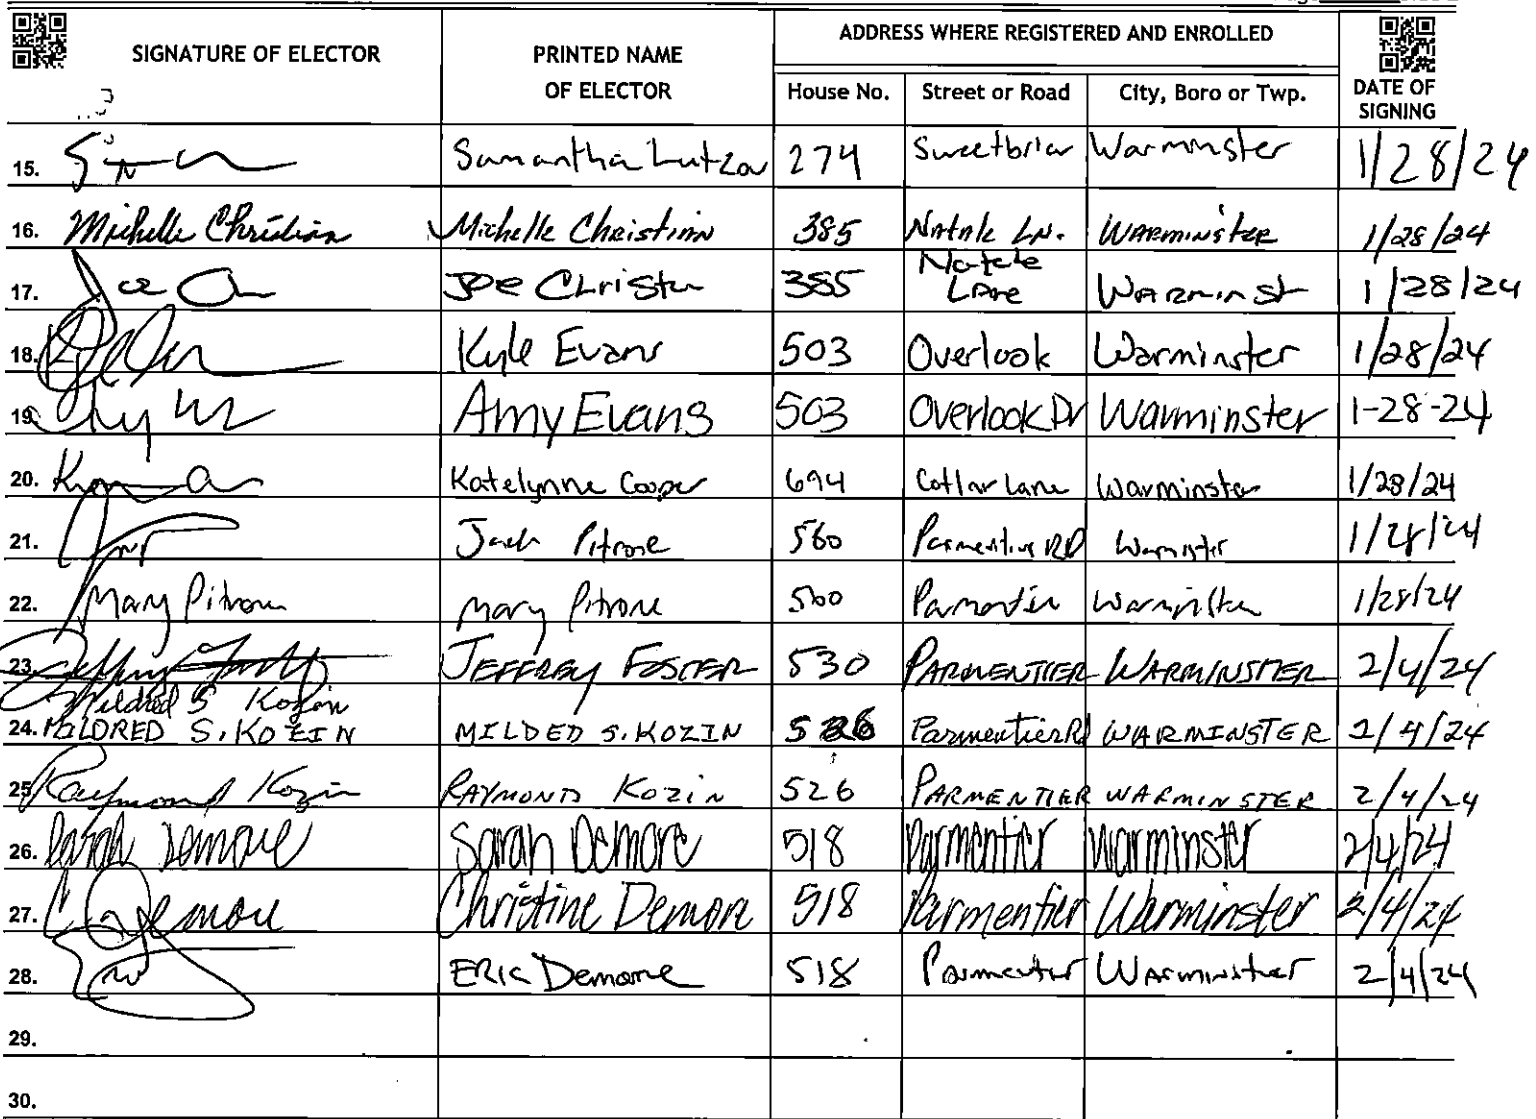 SIGNATURE OF ELECTOR PRINTED NAME OF ELECTOR ADDRESS WHERE REGISTERED AND ENROLLED DATE OF SIGNING
House No. Street or Road City, Boro or Twp.
15. Samantha 274 Sweetbriar Warminster 1/28/24
16. Michelle Christian Michelle Christian 385 Natale LN. WARMINSTER 1/28/24
17. Joe Christn 385 Natale Lane Warminst 1/28/24
18. Kyle Evans 503 Overlook Warminster 1/28/24
19. Amy Evans 503 Overlook Dr Warminster 1-28-24
20. Katelynne Cooper 694 Lane Warminster 1/28/24
21. Pitrone 560 RD 1/28/24
22. Mary Pitrone Mary Pitrone 560 1/28/24
23. JEFFREY FOSTER 530 PARMENTIER WARMINSTER 2/4/24
Mildred S Kozin
24. MILDRED S. KOZIN MILDED S. KOZIN 526 Parmentier Rd WARMINSTER 2/4/24
25. Raymond Kozin RAYMOND KOZIN 526 PARMENTIER WARMINSTER 2/4/24
26. Sarah Demore Sarah Demore 518 Parmentier Warminster 2/4/24
27. Demore Christine Demore 518 Parmentier Warminster 2/4/24
28. ERIC Demore 518 2/4/24
29.
30.